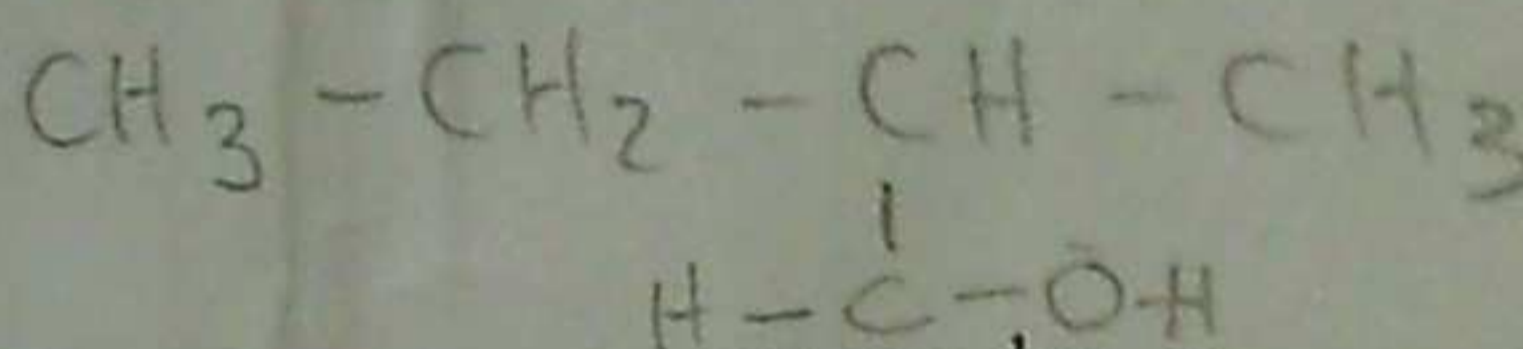 CH3 - CH2 - CH - CH3
|
H - C - O-H